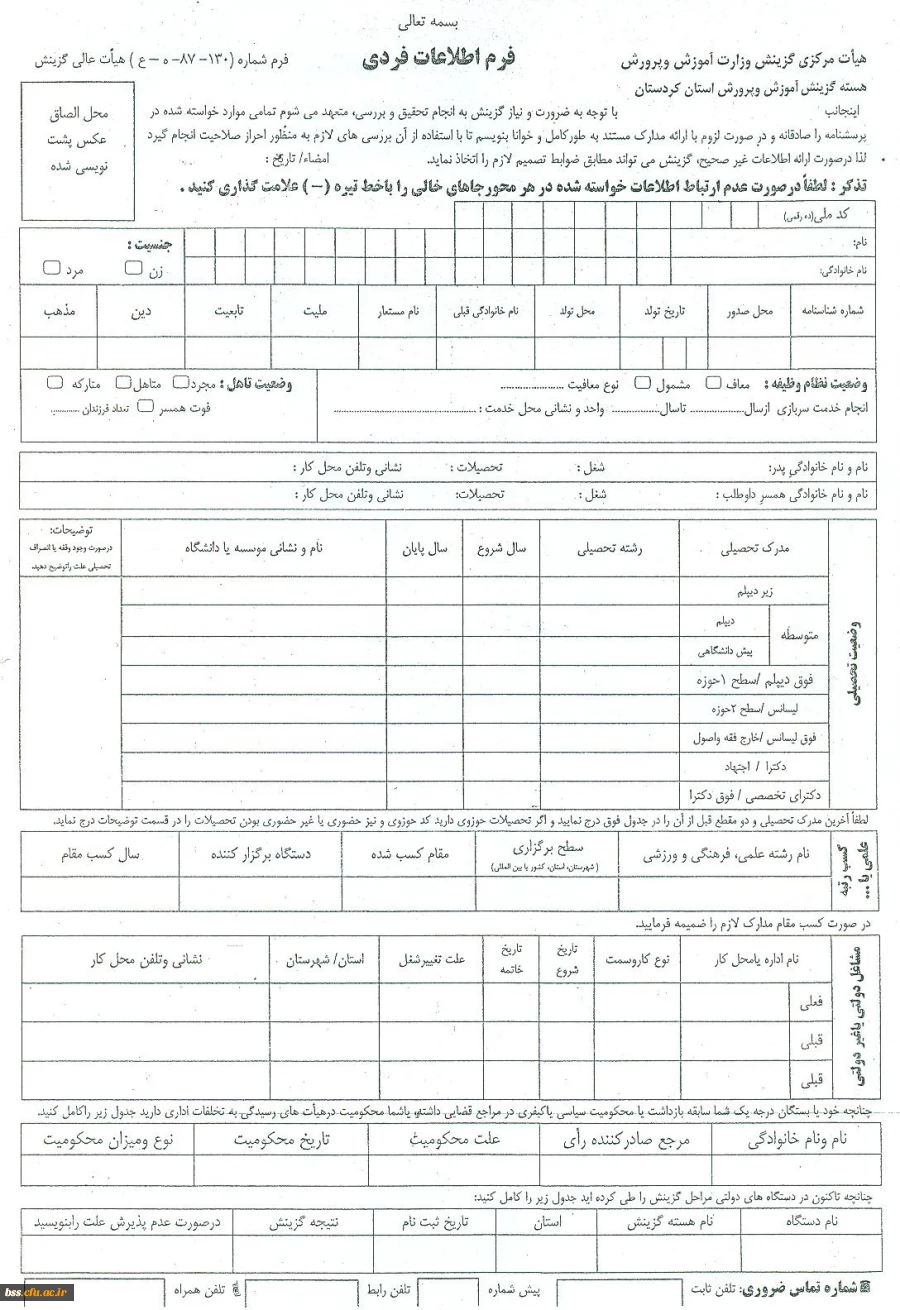 بسمه تعالی
هیأت مرکزی گزینش وزارت آموزش وپرورش
فرم اطلاعات فردی
فرم شماره (۱۳۰- ۸۷- ه – ع ) هیأت عالی گزینش
هسته گزینش آموزش وپرورش استان کردستان
محل الصاق
عکس پشت
نویسی شده
اینجانب با توجه به ضرورت و نیاز گزینش به انجام تحقیق و بررسی، متعهد می شوم تمامی موارد خواسته شده در
پرسشنامه را صادقانه و در صورت لزوم با ارائه مدارک مستند به طورکامل و خوانا بنویسم تا با استفاده از آن بررسی های لازم به منظور احراز صلاحیت انجام گیرد
لذا درصورت ارائه اطلاعات غیر صحیح، گزینش می تواند مطابق ضوابط تصمیم لازم را اتخاذ نماید. امضاء/ تاریخ :
تذکر : لطفاً درصورت عدم ارتباط اطلاعات خواسته شده در هر محورجاهای خالی را باخط تیره (–) علامت گذاری کنید .
کد ملی(ده رقمی)
نام:
نام خانوادگی:
جنسیت :
زن مرد
شماره شناسنامه محل صدور تاریخ تولد محل تولد نام خانوادگی قبلی نام مستعار ملیت تابعیت دین مذهب
وضعیت نظام وظیفه : معاف مشمول نوع معافیت ......................
انجام خدمت سربازی ازسال................... تاسال................. واحد و نشانی محل خدمت : ..................................................
وضعیت تاهل : مجرد متاهل متارکه
فوت همسر تعداد فرزندان ............
نام و نام خانوادگی پدر: شغل : تحصیلات : نشانی وتلفن محل کار :
نام و نام خانوادگی همسر داوطلب : شغل : تحصیلات: نشانی وتلفن محل کار :
وضعیت تحصیلی
مدرک تحصیلی رشته تحصیلی سال شروع سال پایان نام و نشانی موسسه یا دانشگاه
توضیحات:
درصورت وجود وقفه یا انصراف
تحصیلی علت راتوضیح دهید.
زیر دیپلم
متوسطه
دیپلم
پیش دانشگاهی
فوق دیپلم /سطح ۱حوزه
لیسانس /سطح ۲حوزه
فوق لیسانس /خارج فقه واصول
دکترا / اجتهاد
دکترای تخصصی / فوق دکترا
لطفاً آخرین مدرک تحصیلی و دو مقطع قبل از آن را در جدول فوق درج نمایید و اگر تحصیلات حوزوی دارید کد حوزوی و نیز حضوری یا غیر حضوری بودن تحصیلات را در قسمت توضیحات درج نماید.
کسب رتبه
علمی یا ...
نام رشته علمی، فرهنگی و ورزشی سطح برگزاری مقام کسب شده دستگاه برگزار کننده سال کسب مقام
( شهرستان، استان، کشور یا بین المللی)
در صورت کسب مقام مدارک لازم را ضمیمه فرمایید.
مشاغل دولتی یاغیر دولتی
نام اداره یامحل کار نوع کاروسمت تاریخ شروع تاریخ خاتمه علت تغییرشغل استان/ شهرستان نشانی وتلفن محل کار
فعلی
قبلی
قبلی
چنانچه خود یا بستگان درجه یک شما سابقه بازداشت یا محکومیت سیاسی یاکیفری در مراجع قضایی داشته، یاشما محکومیت درهیأت های رسیدگی به تخلفات اداری دارید جدول زیر راکامل کنید.
نام ونام خانوادگی مرجع صادرکننده رأی علت محکومیت تاریخ محکومیت نوع ومیزان محکومیت
چنانچه تاکنون در دستگاه های دولتی مراحل گزینش را طی کرده اید جدول زیر را کامل کنید:
نام دستگاه نام هسته گزینش استان تاریخ ثبت نام نتیجه گزینش درصورت عدم پذیرش علت رابنویسید
شماره تماس ضروری: تلفن ثابت پیش شماره تلفن رابط تلفن همراه
bss.cfu.ac.ir